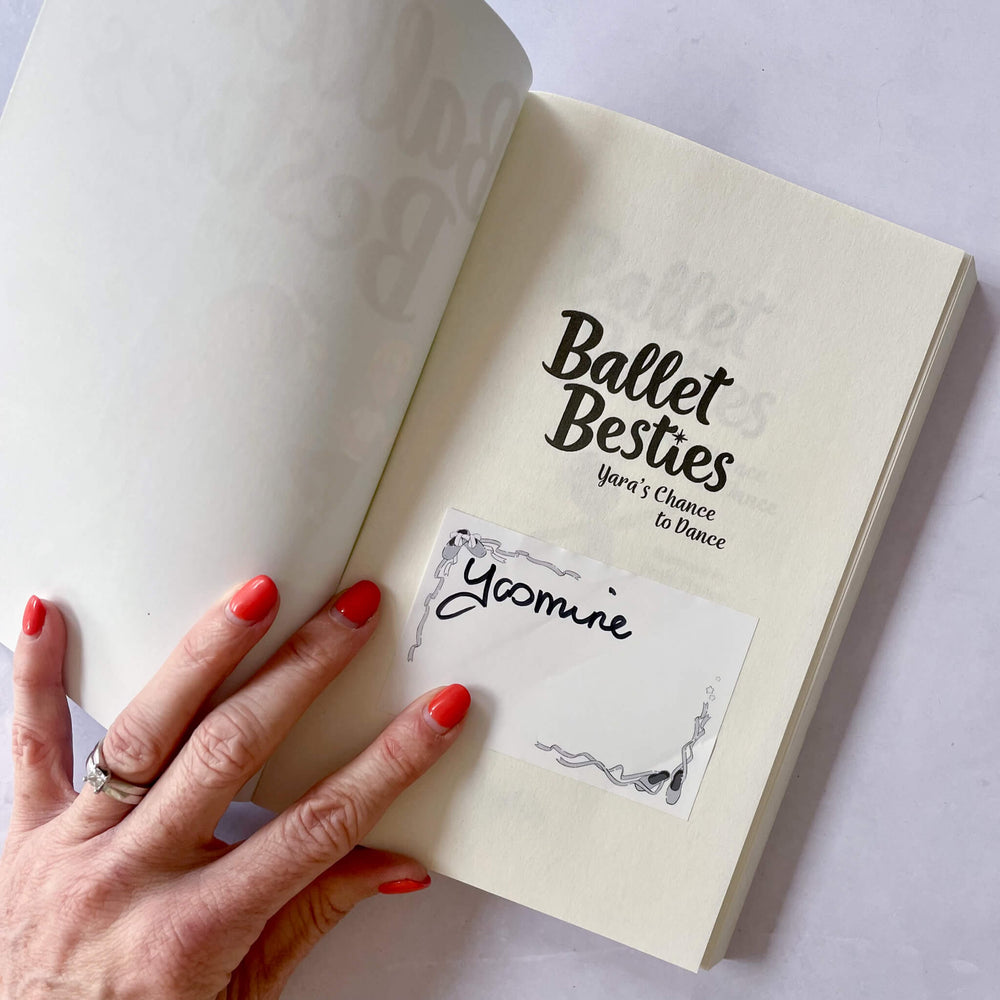 Ballet
Besties
Yara's Chance
to Dance
Yasmine